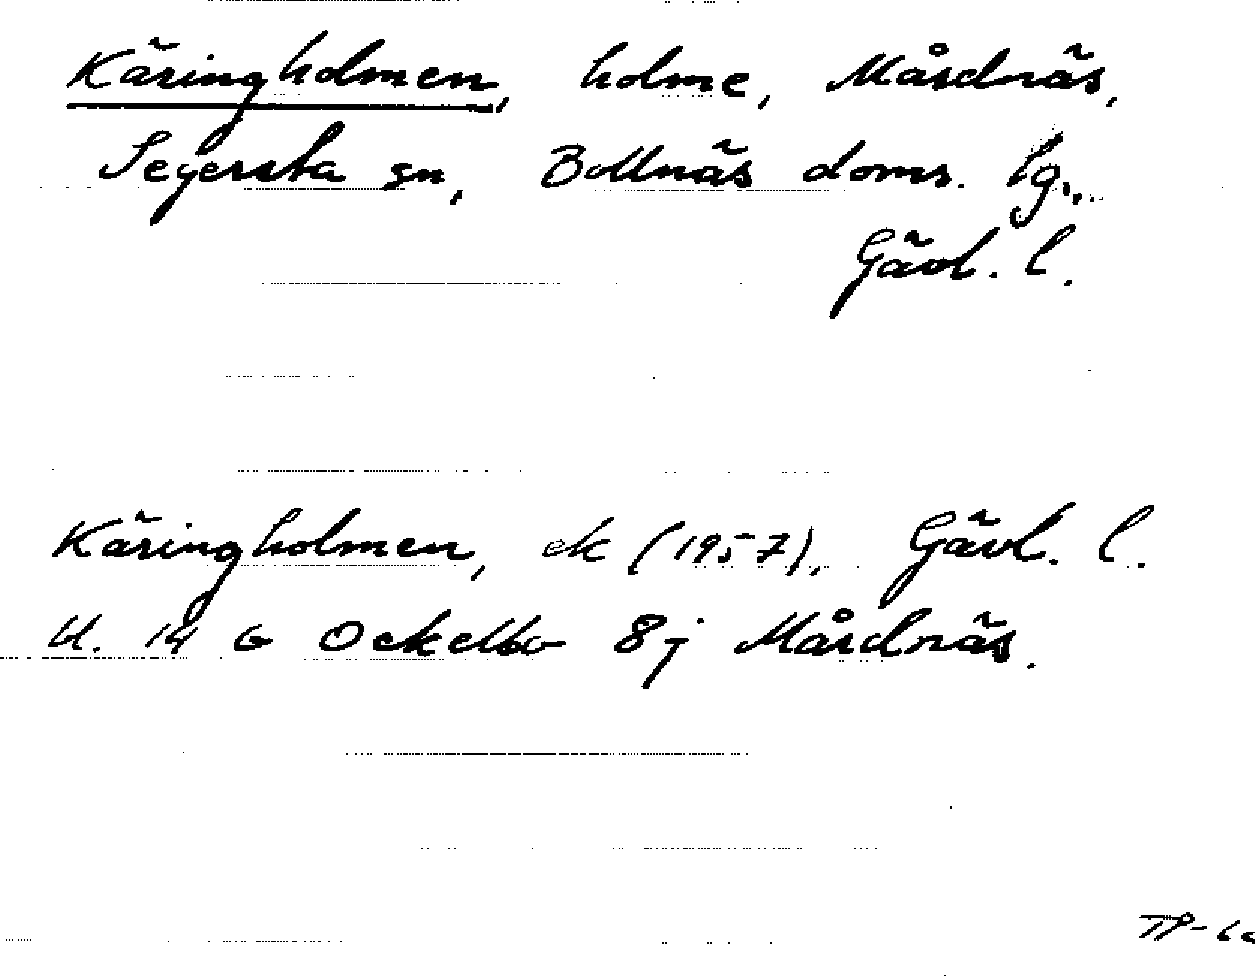 Käringholmen, holme, Mårdnäs,
Segersta sn, Bollnäs doms. lg.,
Gävl. l.
Käringholmen, ek (1957), Gävl. l.
U. 14 G Ockelbo 8j Mårdnäs.